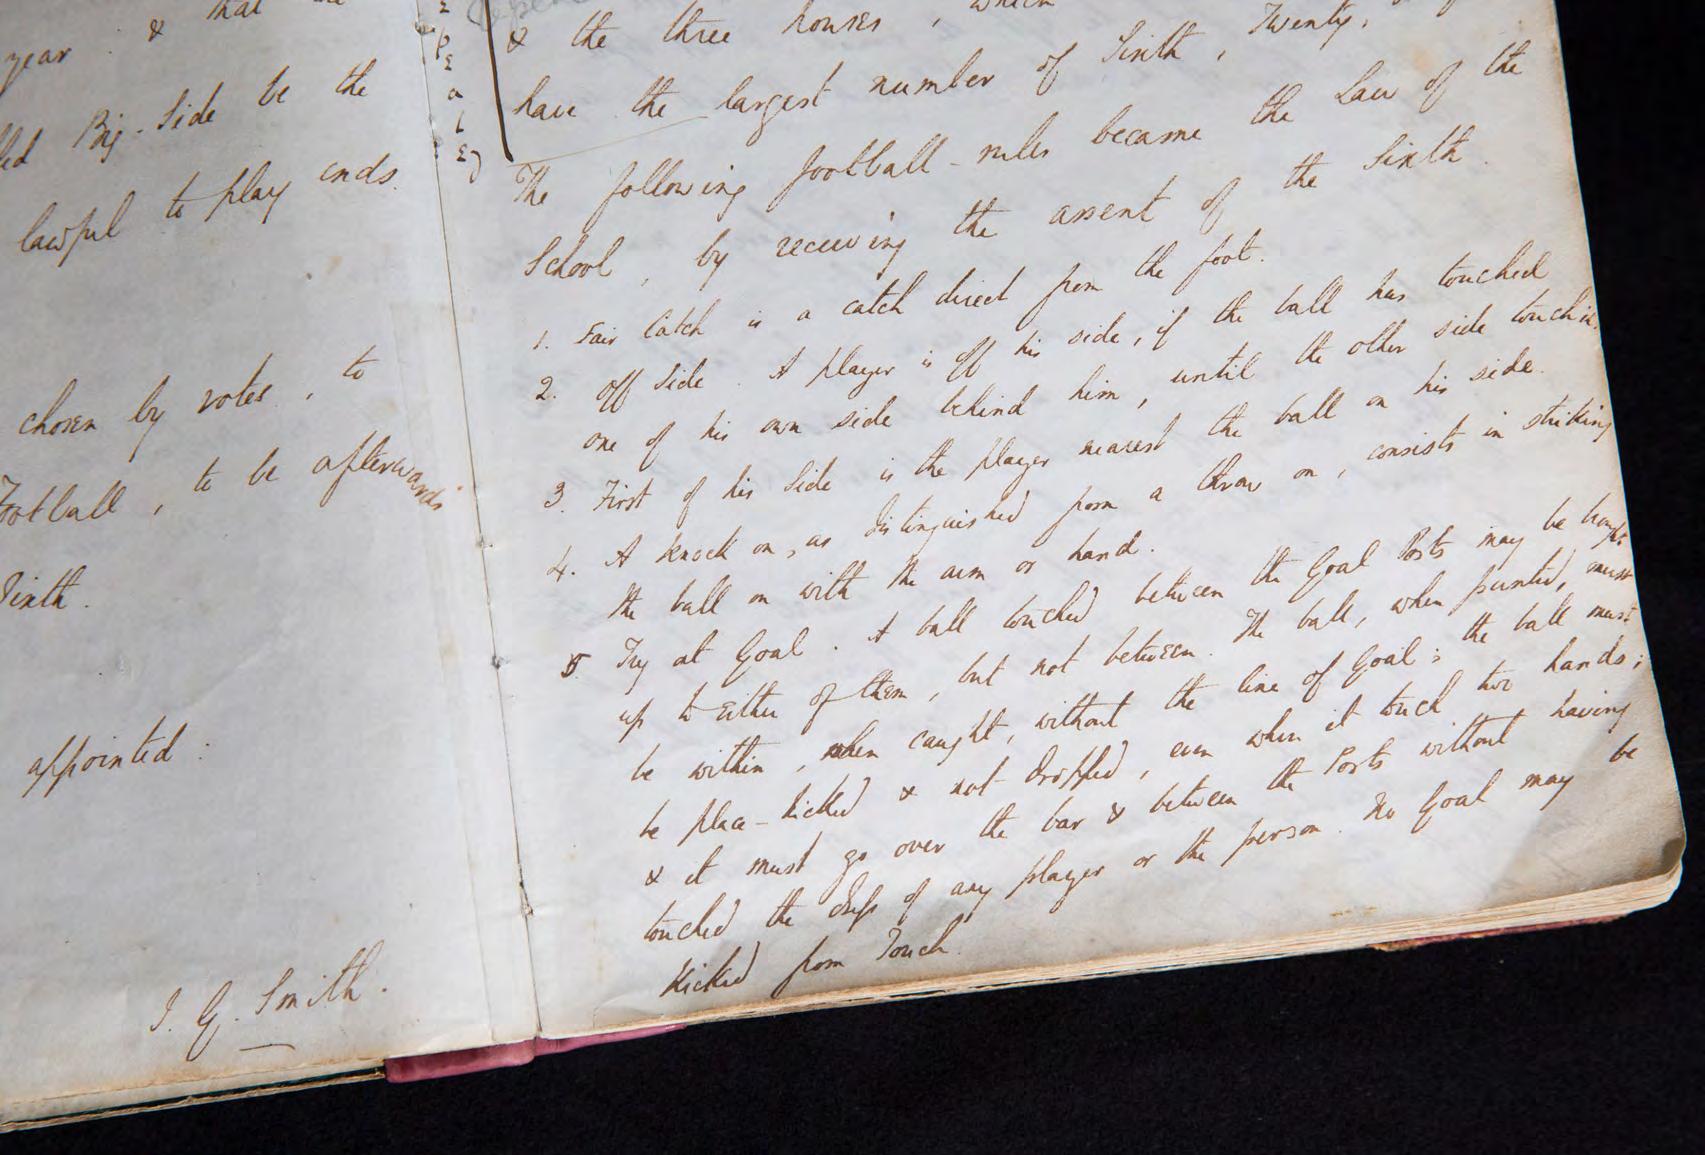 year : & that
led Big-Side be the
lawful to play ends.
chosen by votes, to
Football, to be afterwards
Sixth.
appointed :
J. G. Smith.
E
p
E
a
l
E
)
& the three houses, which
have the largest number of Sixth, Twenty,
The following football-rules became the Law of the
School, by receiving the assent of the Sixth.
1. Fair Catch is a catch direct from the foot.
2. Off Side. A player is off his side, if the ball has touched
one of his own side behind him, until the other side touch it.
3. First of his Side is the player nearest the ball on his side.
4. A knock on, as distinguished from a throw on, consists in striking
the ball on with the arm or hand.
5. Try at Goal. A ball touched between the Goal Posts may be brought
up to either of them, but not between. The ball, when punted, must
be within, when caught, without the line of Goal; the ball must
be place-kicked & not dropped, even when it touch two hands;
& it must go over the bar & between the Posts without having
touched the dress of any player or the person. No Goal may be
kicked from Touch.